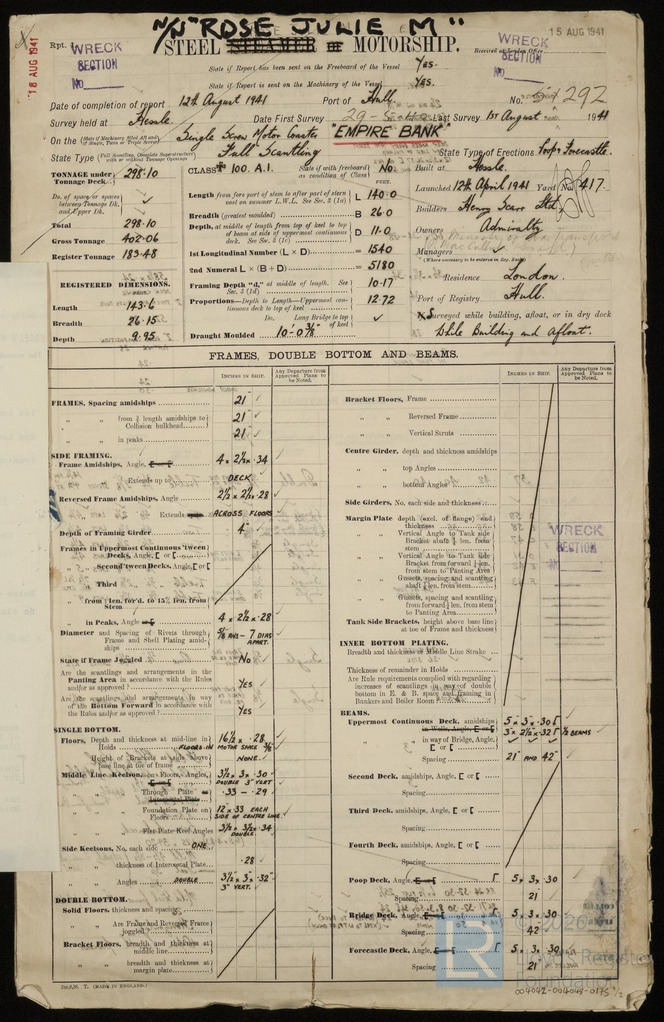 N/N "ROSE JULIE M"
18 AUG 1941
Rpt.
WRECK
SECTION
No
STEEL STEAMER OR MOTORSHIP.
Received at London Office
WRECK
SECTION
No
15 AUG 1941
State if Report has been sent on the Freeboard of the Vessel Yes.
State if Report is sent on the Machinery of the Vessel Yes.
Date of completion of report 12th August 1941 Port of Hull. No. 292
Survey held at Hessle. Date First Survey 29 Last Survey 1st August 1941
On the (State if Machinery fitted Aft and if Single, Twin or Triple Screw) Single Screw Motor Coaster "EMPIRE BANK"
State Type Full Scantling State Type of Erections Poop, Forecastle.
TONNAGE under Tonnage Deck 298.10
Do. of space or spaces between Tonnage Dk. and Upper Dk. ✓
Total 298.10
Gross Tonnage 402.06
Register Tonnage 183.48
REGISTERED DIMENSIONS.
Length 143.6
Breadth 26.15
Depth 9.95
CLASS ✠ 100. A.1. State if with freeboard as condition of Class No.
Length from fore part of stem to after part of stern post on summer L.W.L. See Sec. 3 (1a) L 140.0
Breadth (greatest moulded) B 26.0
Depth, at middle of length from top of keel to top of beam at side of uppermost continuous deck. See Sec. 3 (1c) D 11.0
1st Longitudinal Number (L × D) = 1540
2nd Numeral L × (B + D) = 5180
Framing Depth "d," at middle of length. See Sec. 3 (1d) 10.17
Proportions—Depth to Length—Uppermost continuous deck to top of keel 12.72
Do. Long Bridge to top of keel ✓
Draught Moulded 10'-0⅞"
Built at Hessle.
Launched 12th April 1941 Yard No. 417.
Builders Henry Scarr Ltd.
Owners Admiralty
Managers
(Where necessary to be entered in Reg. Book)
Residence London.
Port of Registry Hull.
Surveyed while building, afloat, or in dry dock
While Building and Afloat.
FRAMES, DOUBLE BOTTOM AND BEAMS.
INCHES IN SHIP.
Any Departure from Approved Plans to be Noted.
FRAMES, Spacing amidships 21 ✓
" " from ⅗ length amidships to Collision bulkhead 21 ✓
" " in peaks 21 ✓
SIDE FRAMING.
Frame Amidships, Angle, 4 × 2½ × .34
" " Extends up to DECK
Reversed Frame Amidships, Angle 2½ × 2½ × .28
" " Extends ACROSS FLOORS
Depth of Framing Girder 4"
Frames in Uppermost Continuous 'tween Decks, Angle, [ or [
" Second 'tween Decks, Angle, [ or [
" Third " " "
" from ⅕ len. for'd. to 15% len. from Stem
" in Peaks, Angle 4 × 2½ × .28
Diameter and Spacing of Rivets through Frame and Shell Plating amidships ⅝ RIVS – 7 DIAS APART.
State if Frame Joggled No
Are the scantlings and arrangements in the Panting Area in accordance with the Rules and/or as approved? YES ✓
Are the scantlings and arrangements in way of the Bottom Forward in accordance with the Rules and/or as approved? YES ✓
SINGLE BOTTOM.
Floors, Depth and thickness at mid-line in Holds 16½ × .28
FLOORS IN MOTOR SPACE
Height of Brackets at side above base line at toe of frame NONE.
Middle Line Keelson, on Floors, Angles, 3½ × 3 × .30 DOUBLE 3" VERT
" " Through Plate or Intercostal Plate .33 - .29
" " Foundation Plate on Floors 12 × .33 EACH SIDE OF CENTRE LINE
" " Flat Plate Keel Angles 3½ × 3½ × .34 DOUBLE.
Side Keelsons, No. each side ONE
" " thickness of Intercostal Plate .28
" " Angles DOUBLE 3½ × 3 × .32 3" VERT.
DOUBLE BOTTOM.
Solid Floors, thickness and spacing
" " Are Frame and Reversed Frame joggled?
Bracket Floors, breadth and thickness at middle line
" " breadth and thickness at margin plate
INCHES IN SHIP.
Any Departure from Approved Plans to be Noted.
Bracket Floors, Frame
" " Reversed Frame
" " Vertical Struts
Centre Girder, depth and thickness amidships
" " top Angles
" " bottom Angles
Side Girders, No. each side and thickness
Margin Plate depth (excl. of flange) and thickness
" " Vertical Angle to Tank side Bracket abaft ¼ len. from stem
" " Vertical Angle to Tank side Bracket from forward ¼ len. from stem to Panting Area
" " Gussets, spacing and scantling abaft ¼ len. from stem
" " Gussets, spacing and scantling from forward ¼ len. from stem to Panting Area
Tank Side Brackets, height above base line at toe of Frame and thickness
WRECK
SECTION
INNER BOTTOM PLATING.
Breadth and thickness of Middle Line Strake
Thickness of remainder in Holds
Are Rule requirements complied with regarding increases of scantlings in way of double bottom in E. & B. space and framing in Bunkers and Boiler Room?
BEAMS.
Uppermost Continuous Deck, amidships 5 × 3 × .30
in Wells, Angle, [ or [ 3 × 2½ × .32 ½ BEAMS ✓
" " in way of Bridge, Angle, [ or [
Spacing 21 AND 42
Second Deck, amidships, Angle, [ or [
Spacing
Third Deck, amidships, Angle, [ or [
Spacing
Fourth Deck, amidships, Angle, [ or [
Spacing
Poop Deck, Angle 5 × 3 × .30
Spacing 21
Bridge Deck, Angle 5 × 3 × .30
Spacing 42
Forecastle Deck, Angle 5 × 3 × .30
Spacing 21
(MADE IN ENGLAND.)
LR
©2020
Lloyd's Register
Foundation
004042-004048-0175 1/2